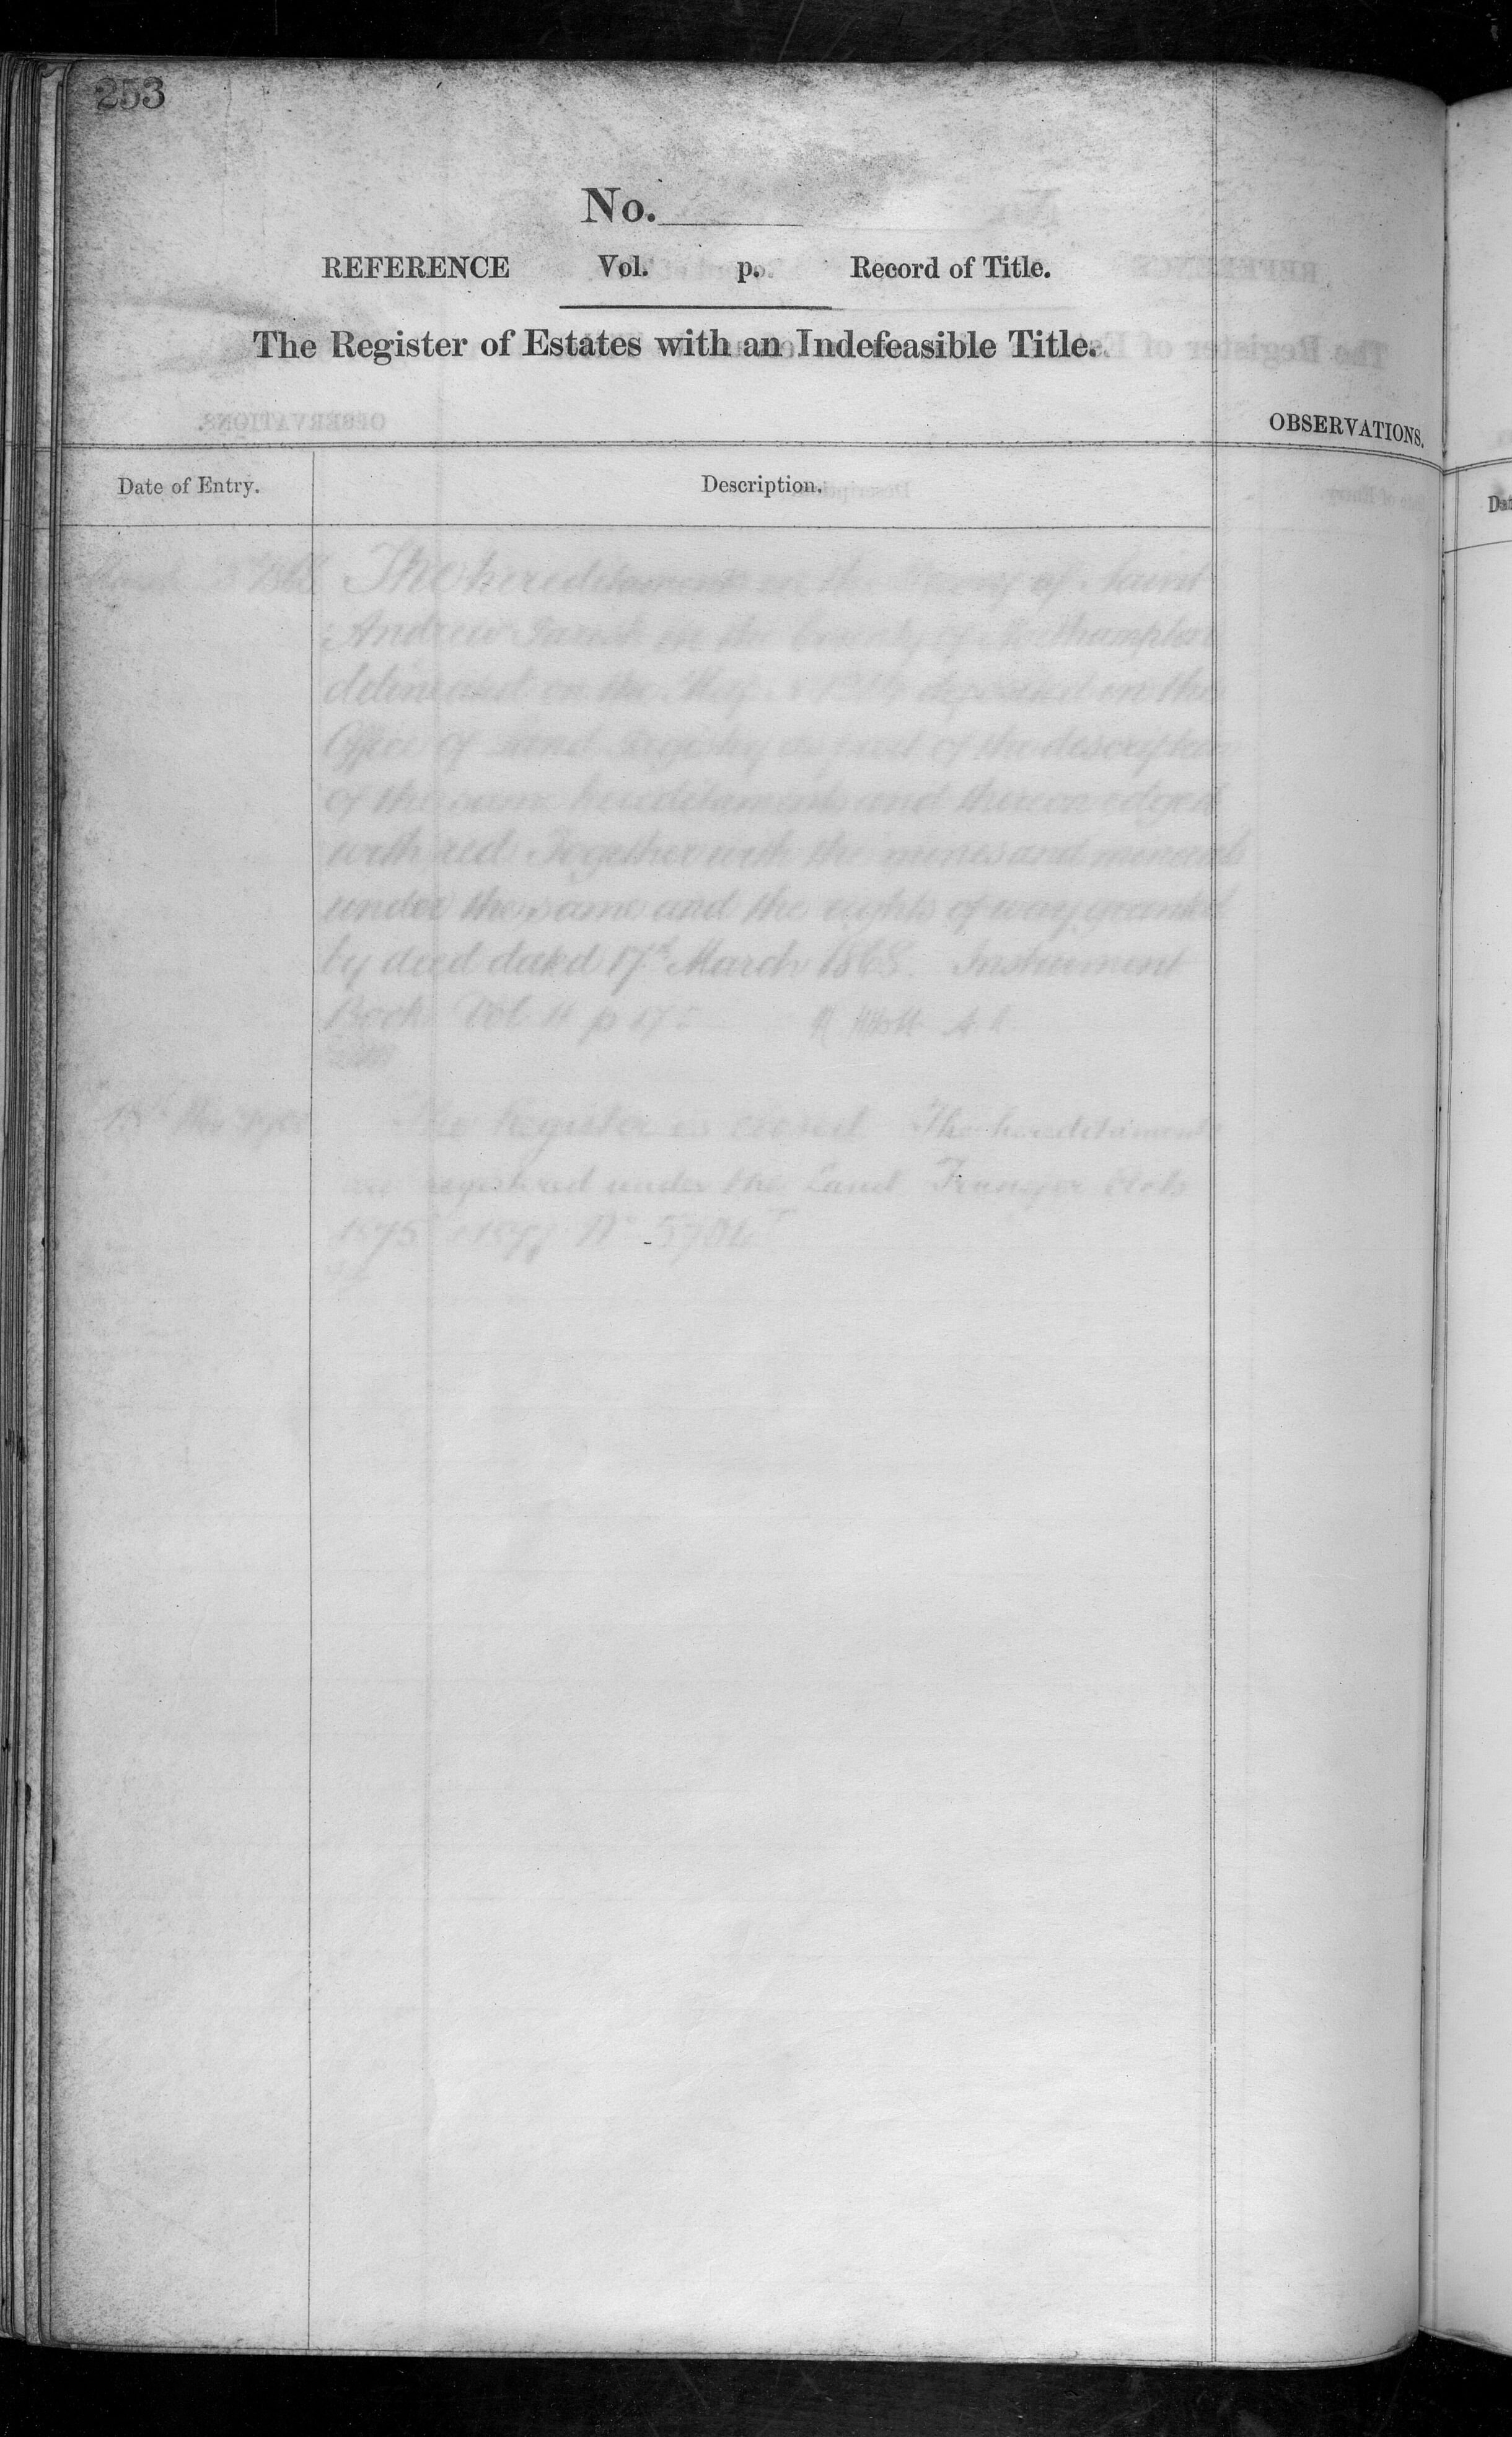 253
No.
REFERENCE Vol. p. Record of Title.
The Register of Estates with an Indefeasible Title.
OBSERVATIONS.
Date of Entry. Description.
The hereditaments in the of Saint
Andrew Parish in the County of Northampton
delineated on the Map deposited in the
Office of Land Registry as part of the description
of the same hereditaments and thereon edged
with red Together with the mines and minerals
under the same and the rights of way granted
by deed dated 17th March 1868. Instrument
Book Vol 11 p
The Register is closed The hereditaments
are registered under the Land Transfer Acts
1875 1897 No